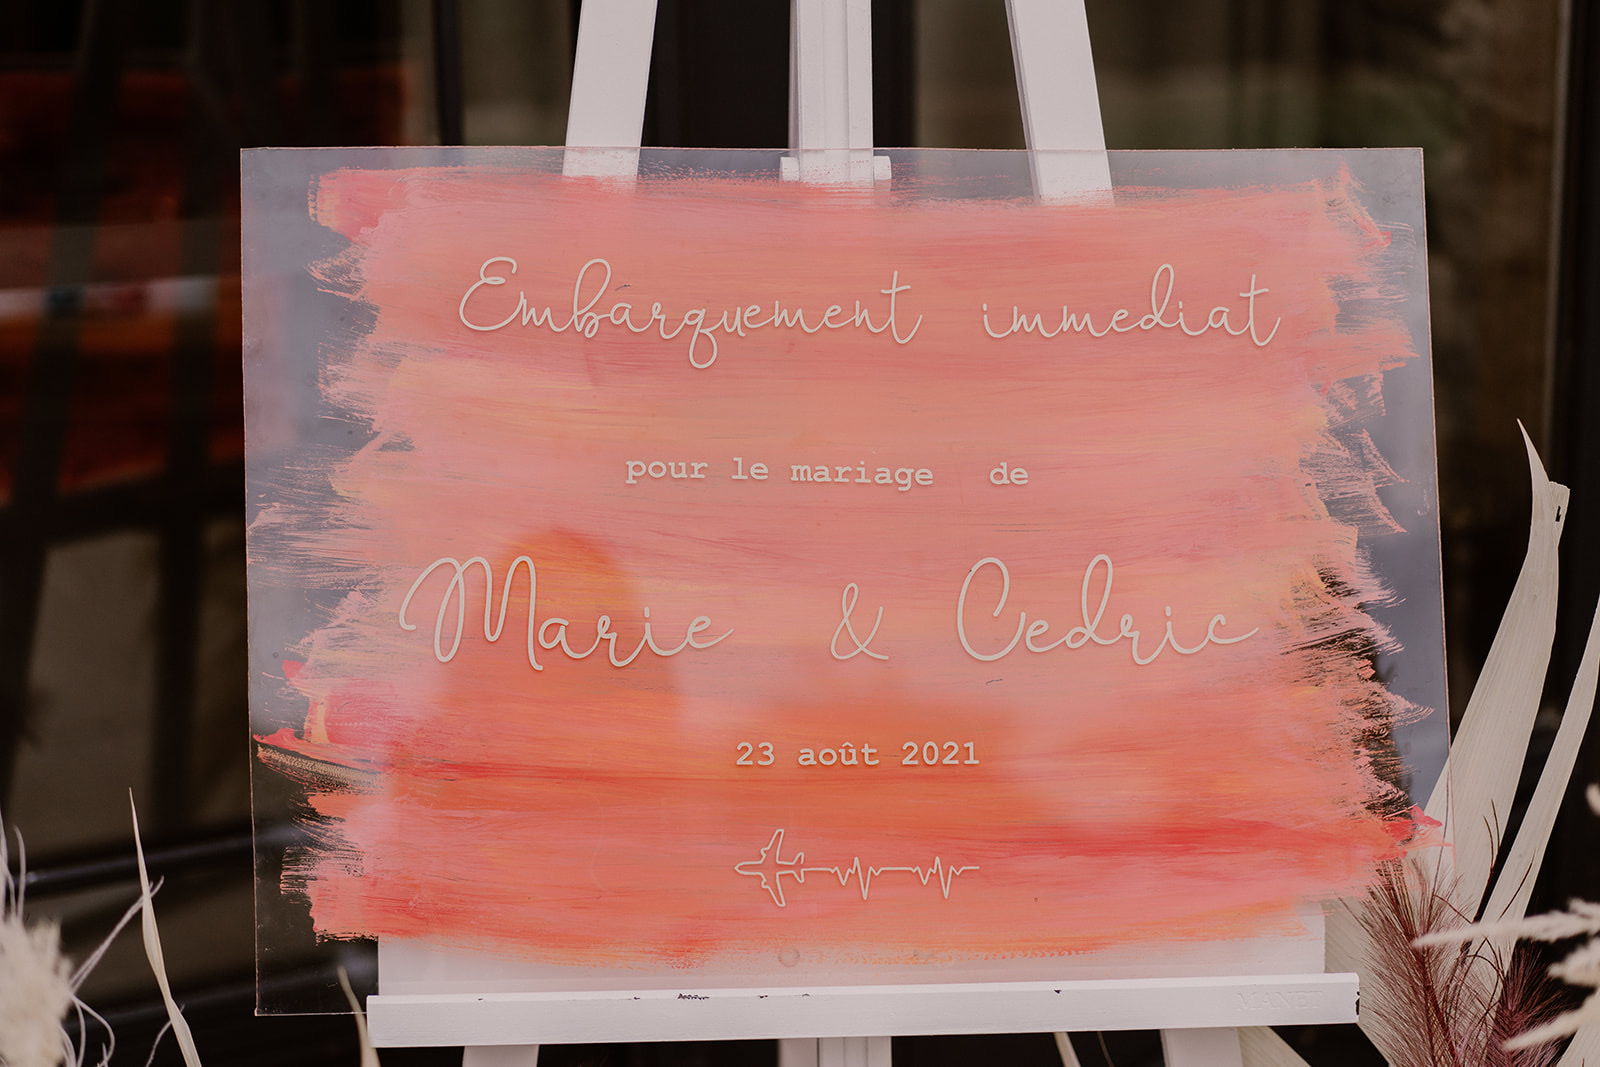 Embarquement immediat
pour le mariage de
Marie & Cedric
23 août 2021
MANET